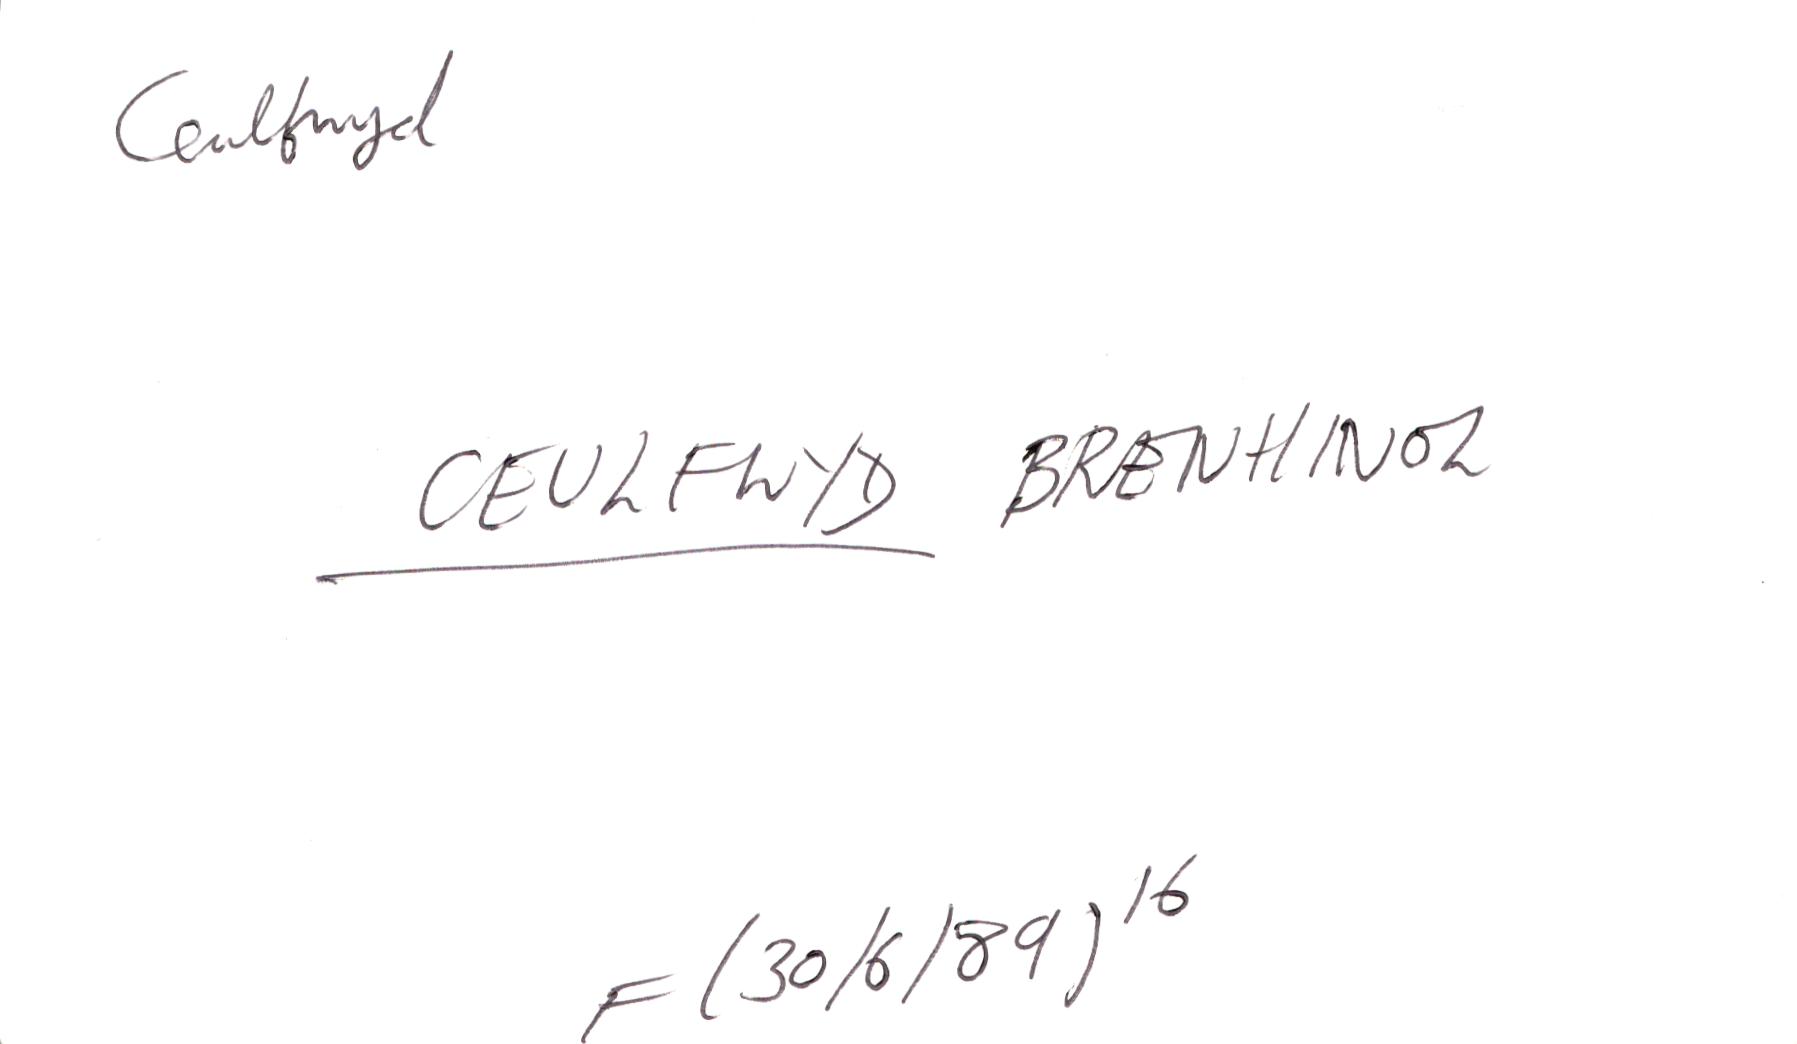 Ceulfwyd
CEULFWYD BRENHINOL
F (30/6/89)16